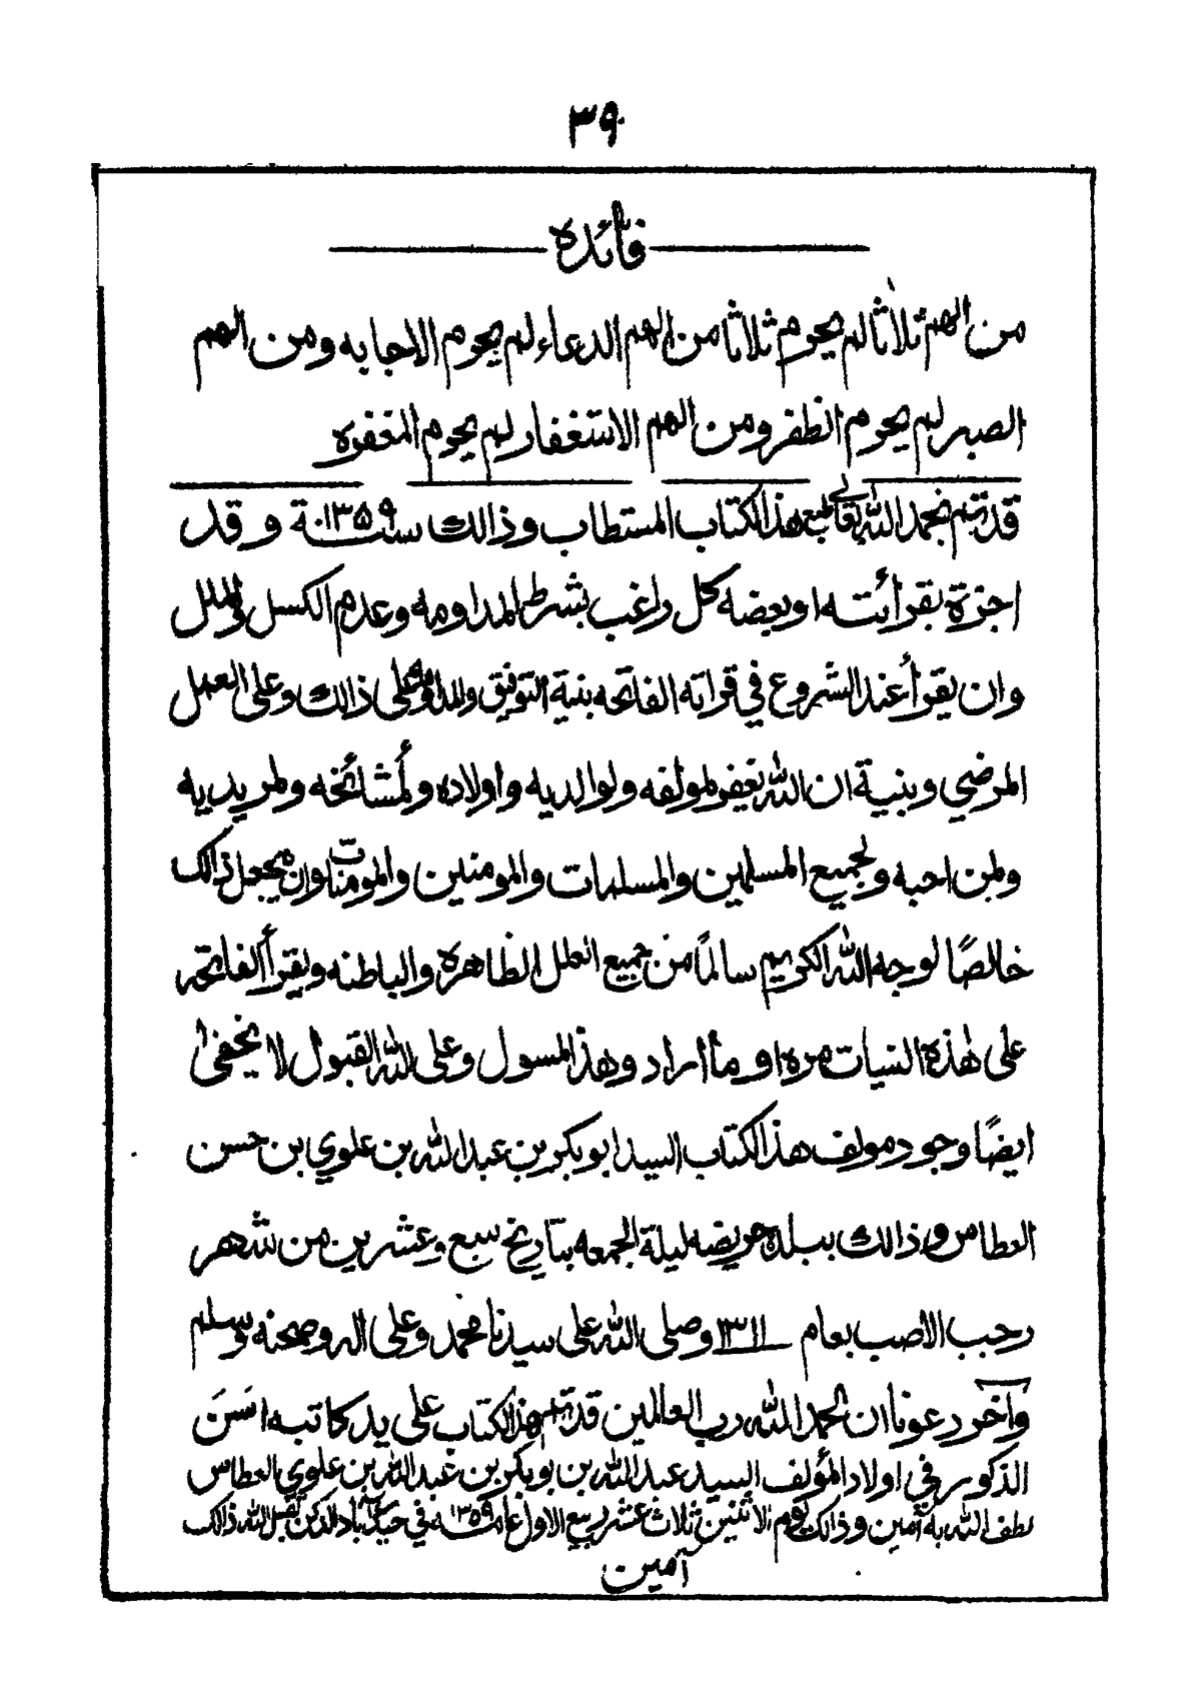 ٣٩
فائده
من الهم ثلاثا لم يحرم ثلاثا من الهم الدعاء لم يحرم الاجابه ومن الهم
الصبر لم يحرم الظفر ومن الهم الاستغفار لم يحرم المغفره
قد تم بحمد الله تعالى طبع هذا الكتاب المستطاب وذالك سنة ١٣٥٩ وقد
اجزة بقرأئته او بعضه كل راغب بشرط المداومه وعدم الكسل والملل
وان يقرأ عند الشروع في قراته الفاتحه بنية التوفيق والمداومه على ذالك وعلى العمل
المرضي وبنية ان الله يغفر لمولفه ولوالديه واولاده ولمشائخه ولمريديه
ولمن احبه ولجميع المسلمين والمسلمات والمومنين والمومنات وان يجعل ذالك
خالصًا لوجه الله الكريم سالمًا من جميع العلل الظاهرة والباطنه ويقرأ الفاتحه
على هذه النيات مره او ما اراد وهذا المسول وعلى الله القبول لا يخفى
ايضًا وجود مولف هذا الكتاب السيد ابو بكر بن عبدالله بن علوي بن حسن
العطاس وذالك ببلده حريضه ليلة الجمعه بتاريخ سبع وعشرين من شهر
رجب الاصب بعام ١٣١١ وصلى الله على سيدنا محمد وعلى اله وصحبه وسلم
وآخر دعونا ان الحمد لله رب العالمين قد تم هذا الكتاب على يد كاتبه اسَنَ
الذكور في اولاد المؤلف السيد عبدالله بن بوبكر بن عبدالله بن علوي العطاس
لطف الله به آمين وذالك يوم الاثنين ثلاث عشر ربيع الاول عام ١٣٥٩ه في حيدرآباد الدكن تقبل الله ذالك
آمين